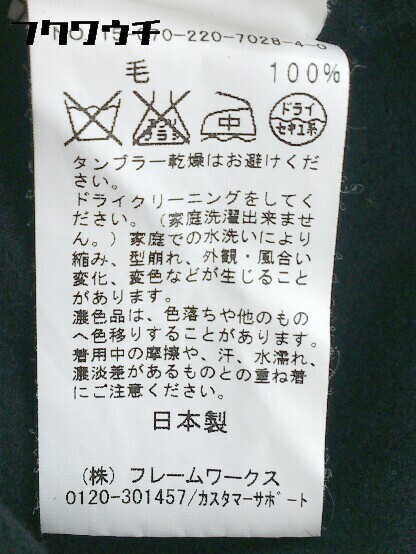 フクワウチ
NO.15-070-220-7028-4-0
毛 100%
エンソサラシ 中 ドライ セキユ系
タンブラー乾燥はお避けくだ
さい。
ドライクリーニングをしてく
ださい。(家庭洗濯出来ませ
ん。)家庭での水洗いにより
縮み、型崩れ、外観・風合い
変化、変色などが生じること
があります。
濃色品は、色落ちや他のもの
へ色移りすることがあります。
着用中の摩擦や、汗、水濡れ、
濃淡差があるものとの重ね着
にご注意ください。
日本製
(株) フレームワークス
0120-301457/カスタマーサポート